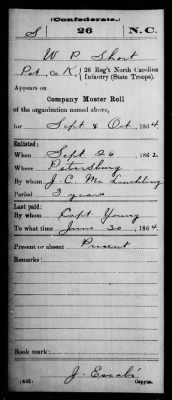 (Confederate.)
S 26 N.C.
W P Short
Pvt, Co. K, 26 Reg't North Carolina
Infantry (State Troops).
Appears on
Company Muster Roll
of the organization named above,
for Sept & Oct, 1864.
Enlisted:
When Sept. 26, 1862.
Where Petersburg
By whom J. C. Mc
Period 3 years
Last paid:
By whom Capt Young
To what time June 30, 1864.
Present or absent Present
Remarks:
Book mark:
(642) J. Copyist.